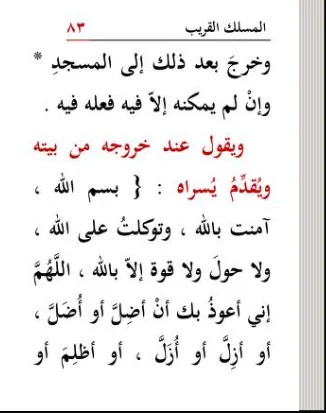 المسلك القريب ٨٣
وخرجَ بعد ذلك إلى المسجدِ *
وإنْ لم يمكنه إلاّ فيه فعله فيه .
ويقول عند خروجه من بيته
ويُقدِّمُ يُسراه : { بسم الله ،
آمنت بالله ، وتوكلتُ على الله ،
ولا حولَ ولا قوة إلاّ بالله ، اللَّهُمَّ
إني أعوذُ بك أنْ أضِلَّ أو أُضَلَّ ،
أو أزِلَّ أو أُزَلَّ ، أو أظلِمَ أو